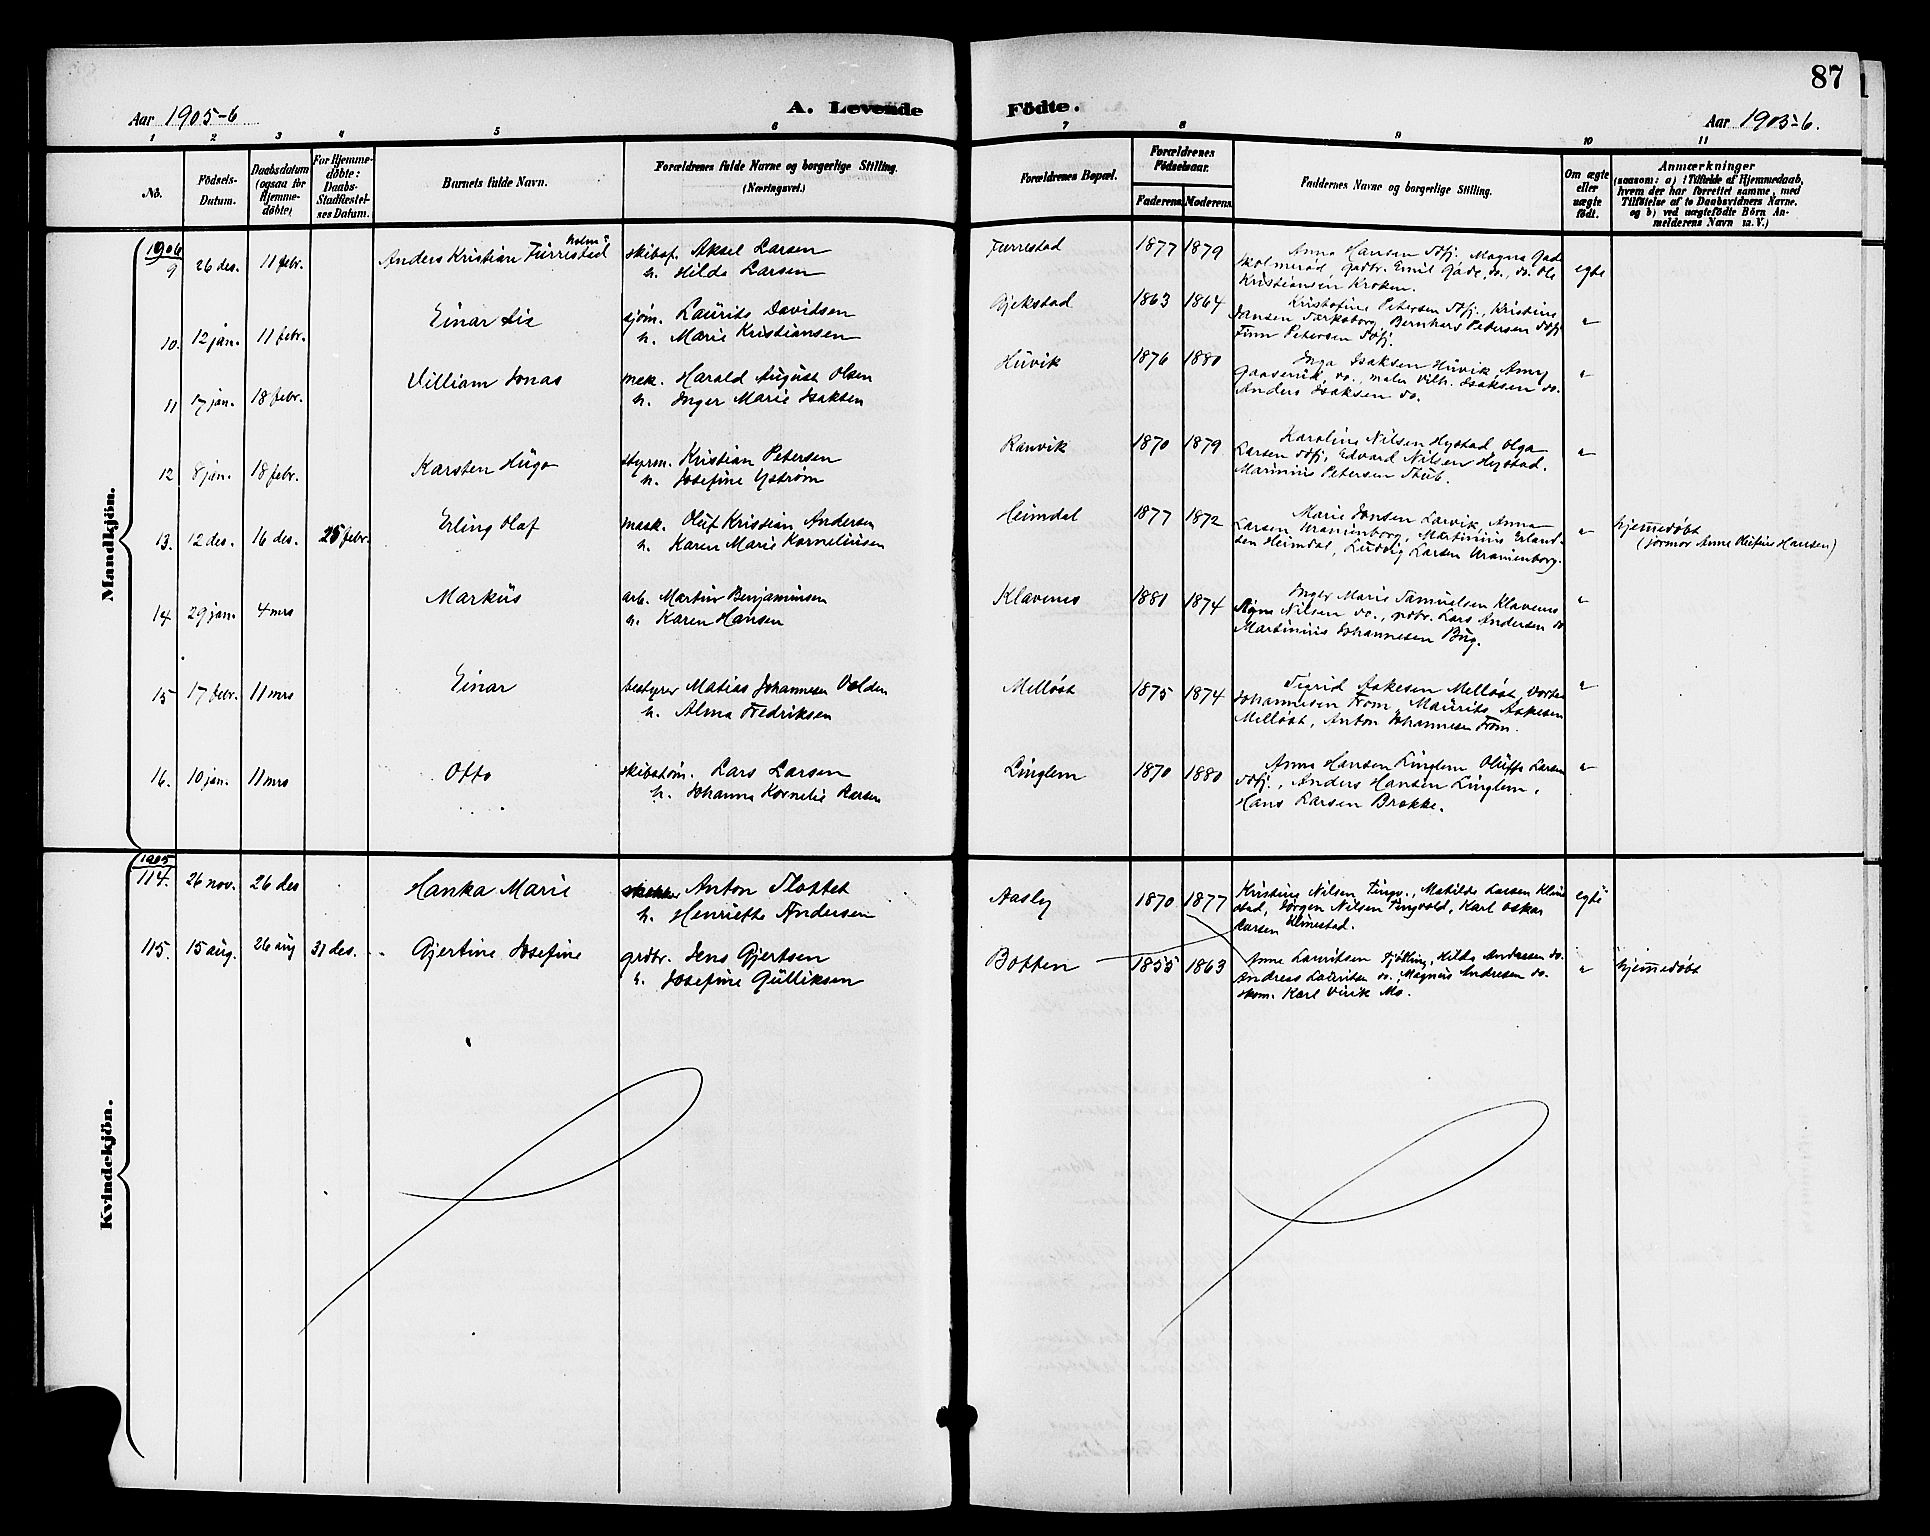 87
Aar 1905-6
A. Levende Födte.
Aar 1905-6.
1 2 3 4 5 6 7 8 9 10 11
No.
Födsels-Datum.
Daabsdatum (ogsaa for Hjemme-döbte)
For Hjemme-döbte: Daabs-Stadfæstel-ses Datum.
Barnets fulde Navn.
Forældrenes fulde Navne og borgerlige Stilling. (Næringsvei.)
Forældrenes Bopæl.
Forældrenes Födselsaar.
Faderens Moderens
Faddernes Navne og borgerlige Stilling.
Om ægte eller uægte født.
Anmærkninger
(saasom: a) i Tilfælde af Hjemmedaab,
hvem der har forrettet samme, med
Tilföielse af to Daabsvidners Navne,
og b) ved uægtefödte Börn An-
melderens Navn m. V.)
Mandkjön.
1906
9 26 des. 11 febr. Anders Kristian Furrestad holm
skibsf. Aksel Larsen
h. Hilda Larsen
Furrestad 1877 1879
Anna Hansen Tofj. Magna Gade
Skolmeröd, gadbr. Emil Gade, do., do. Ole
Kristiansen Kroken.
egte
10. 12 jan. 11 febr. Einar
sjöm. Laurits Davidsen
h. Marie Kristiansen
Gjekstad 1863 1864
Kristofine Petersen Tofj., Kristine
Jansen Tarksborg, Bernhard Petersen Tofj
Finn Petersen Tofj.
"
11 17 jan. 18 febr. Villiam Jonas
mek. Harald August Olsen
h. Inger Marie Isaksen
Huvik 1876 1880
Inga Isaksen Huvik, Amy
Gaaserud do., maler Vilh. Isaksen do.
Anders Isaksen do.
"
12 8 jan. 18 febr. Karsten Hugo
styrm. Kristian Petersen
h. Josefine Yström
Ranvik 1870 1879
Karoline Nilsen Hystad Olga
Larsen Tofj, Edvard Nilsen Hystad.
Marinius Petersen Stub.
"
13. 12 des. 16 des. 25 febr. Erling Olaf
mask. Oluf Kristian Andersen
h. Karen Marie Korneliusen
Heimdal 1877 1872
Marie Jonsen Larvik, Anna
Larsen Uranienborg, Martinius Erland-
sen Heimdal, Ludvig Larsen Uranienborg.
"
hjemmedöbt
(farmor Anne Olufine Hansen)
14 29 jan. 4 mrs Markus
arb. Martin Benjaminsen
h. Karen Hansen
Klavenes 1881 1874
Inger Marie Samuelsen Klavenes
Signe Nilsen do., grdbr. Lars Andersen do
Martinius Johannesen Bug.
"
15 17 febr. 11 mrs Einar
bestyrer Matias Johannesen Volden
h. Alma Fredriksen
Mellöst 1875 1874
Sigrid Askesen Mellöst, Dorte
Johannesen From, Maurits Askesen
Mellöst, Anton Johannesen From.
"
16. 10 jan. 11 mrs Otto
skibstöm. Lars Larsen
h. Johanna Kornelie Larsen
Linglem 1870 1880
Anna Hansen Linglem Oluffa Larsen
Tofj., Anders Hansen Linglem,
Hans Larsen Brekke.
"
Kvindekjön.
1905
114. 26 nov. 26 des Hanka Marie
Anton Flottet
h. Henriette Andersen
Aasly 1870 1877
Kristine Nilsen Tingv., Matilde Larsen Klim
stad, Jörgen Nilsen Tingvold, Karl Oskar
Larsen Klimestad.
egte
115. 15 aug. 26 aug 31 des. Gjertine Josefine
grdbr. Jens Gjertsen
h. Josefine Gulliksen
Botten 1855 1863
Anne Lauritsen Fjötling, Hilda Andersen do.
Andreas Lauritsen do., Magnus Andresen do.
skom. Karl Virik Mo.
"
hjemmedöbt